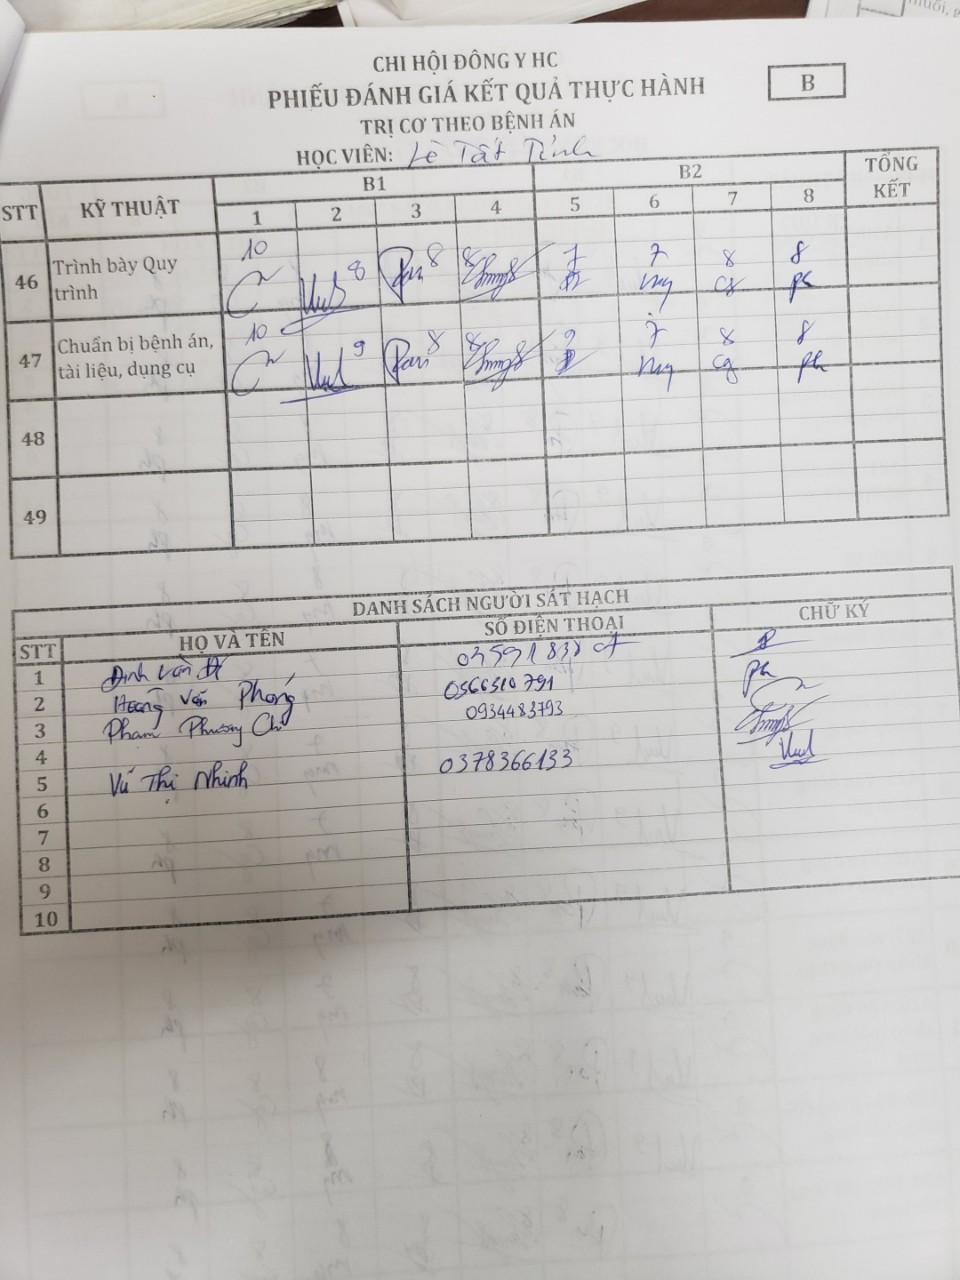 CHI HỘI ĐÔNG Y HC
PHIẾU ĐÁNH GIÁ KẾT QUẢ THỰC HÀNH
B
TRỊ CƠ THEO BỆNH ÁN
HỌC VIÊN: Lê Tất Tỉnh
STT KỸ THUẬT B1 B2 TỔNG KẾT
1 2 3 4 5 6 7 8
46 Trình bày Quy trình 10 8 8 8 7 7 8 8
47 Chuẩn bị bệnh án, tài liệu, dụng cụ 10 9 8 8 7 8 8
48
49
DANH SÁCH NGƯỜI SÁT HẠCH
STT HỌ VÀ TÊN SỐ ĐIỆN THOẠI CHỮ KÝ
1 Đinh Văn
2 Hoàng Văn Phong 0366310791
3 Phạm Phương Chi 0934483793
4
5 Vũ Thị Nhinh 0378366133
6
7
8
9
10